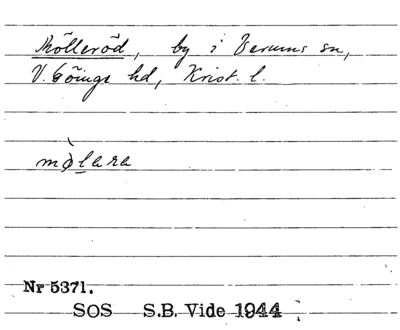 Mölleröd, by i Verums sn,
V. Göinge hd, Krist. l.
mòlara
Nr 5371.
SOS S.B. Vide 1944